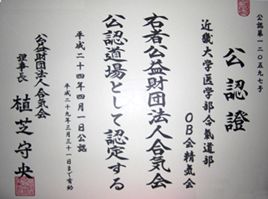 公認第一二〇五九七号
公認證
近畿大学医学部合氣道部
OB会精気会
右者公益財団法人合気会
公認道場として認定する
平成二十四年四月一日公認
平成二十九年三月三十一日まで有効
公益財団法人合気会
理事長 植芝守央